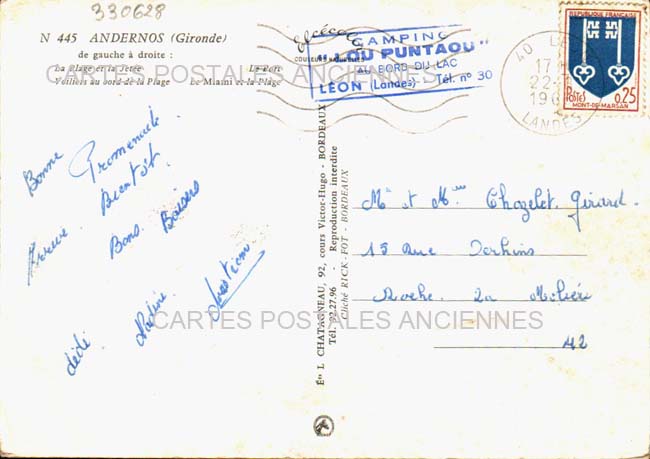 330628
N 445 ANDERNOS (Gironde)
de gauche à droite :
La Plage et la Jetée Le Port
Voiliers au bord de la Plage Le Miami et la Plage
CARTES POSTALES ANCIENNES
COULEURS NATURELLES
CAMPING
"LOU PUNTAOU"
AU BORD DU LAC
LÉON (Landes) Tél. n° 30
40
LANDES
REPUBLIQUE FRANÇAISE
Postes 0,25
MONT-DE-MARSAN
Bonne Promenade
Arrive Bientôt
Bons Baisers
dédé Nadine
Éts L. CHATAGNEAU, 92, cours Victor-Hugo - BORDEAUX
Tél. 92.27.96 - Reproduction interdite
Cliché RICK-FOT - BORDEAUX
Mr et Mme Chazelet. Girard.
15 Rue
Roche La Molière
42
CARTES POSTALES ANCIENNES